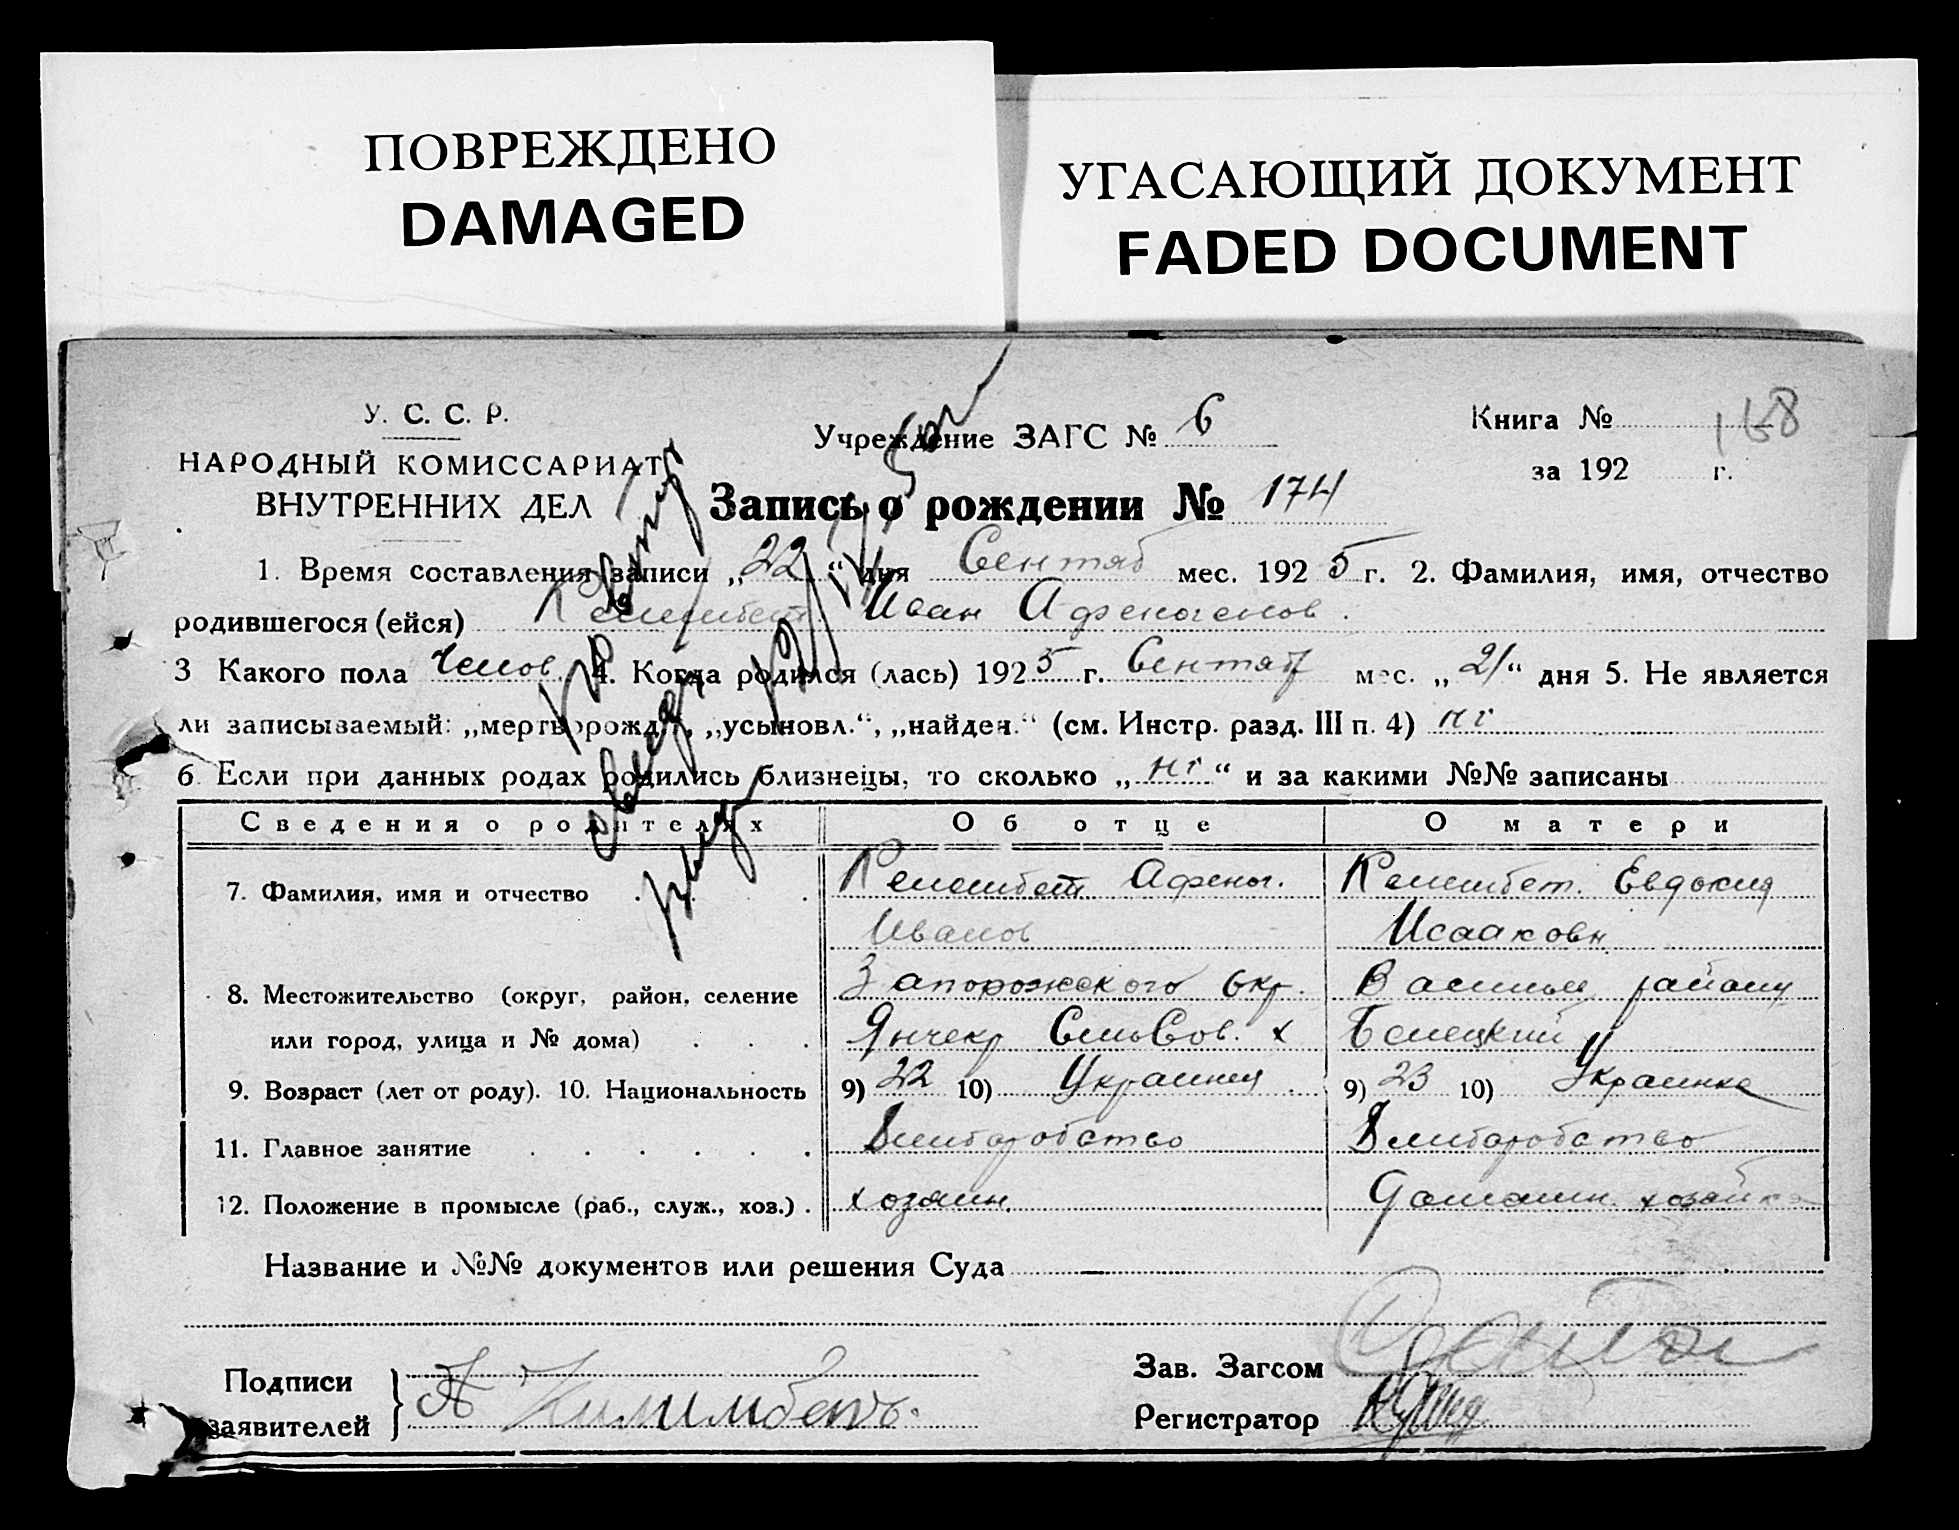 ПОВРЕЖДЕНО
DAMAGED
УГАСАЮЩИЙ ДОКУМЕНТ
FADED DOCUMENT
У. С. С. Р.
НАРОДНЫЙ КОМИССАРИАТ
ВНУТРЕННИХ ДЕЛ
Учреждение ЗАГС № 6
Книга № 168
за 192 г.
Запись о рождении № 174
1. Время составления записи „22“ дня Сентяб мес. 1925 г. 2. Фамилия, имя, отчество
родившегося (ейся) Келембет Иван Афеногенов.
3 Какого пола Челов. 4. Когда родился (лась) 1925 г. Сентяб мес. „21“ дня 5. Не является
ли записываемый: „мертворожд.“, „усыновл.“, „найден.“ (см. Инстр. разд. III п. 4) нт
6. Если при данных родах родились близнецы, то сколько „нт“ и за какими №№ записаны
Сведения о родителях Об отце О матери
7. Фамилия, имя и отчество . . . Келембет Афеног. Келембет. Евдокия
Иванов Исааковн
8. Местожительство (округ, район, селение Запорожского Окр. району
или город, улица и № дома) . . . Янчекр СельСов. х
9. Возраст (лет от роду). 10. Национальность 9) 22 10) Украинец 9) 23 10) Украинка
11. Главное занятие . . . . . . Хлиборобство Хлиборобство
12. Положение в промысле (раб., служ., хоз.) . хозяин. Домашн. хозяйка
Название и №№ документов или решения Суда
Подписи
заявителей
А Килимбетъ.
Зав. Загсом
Регистратор